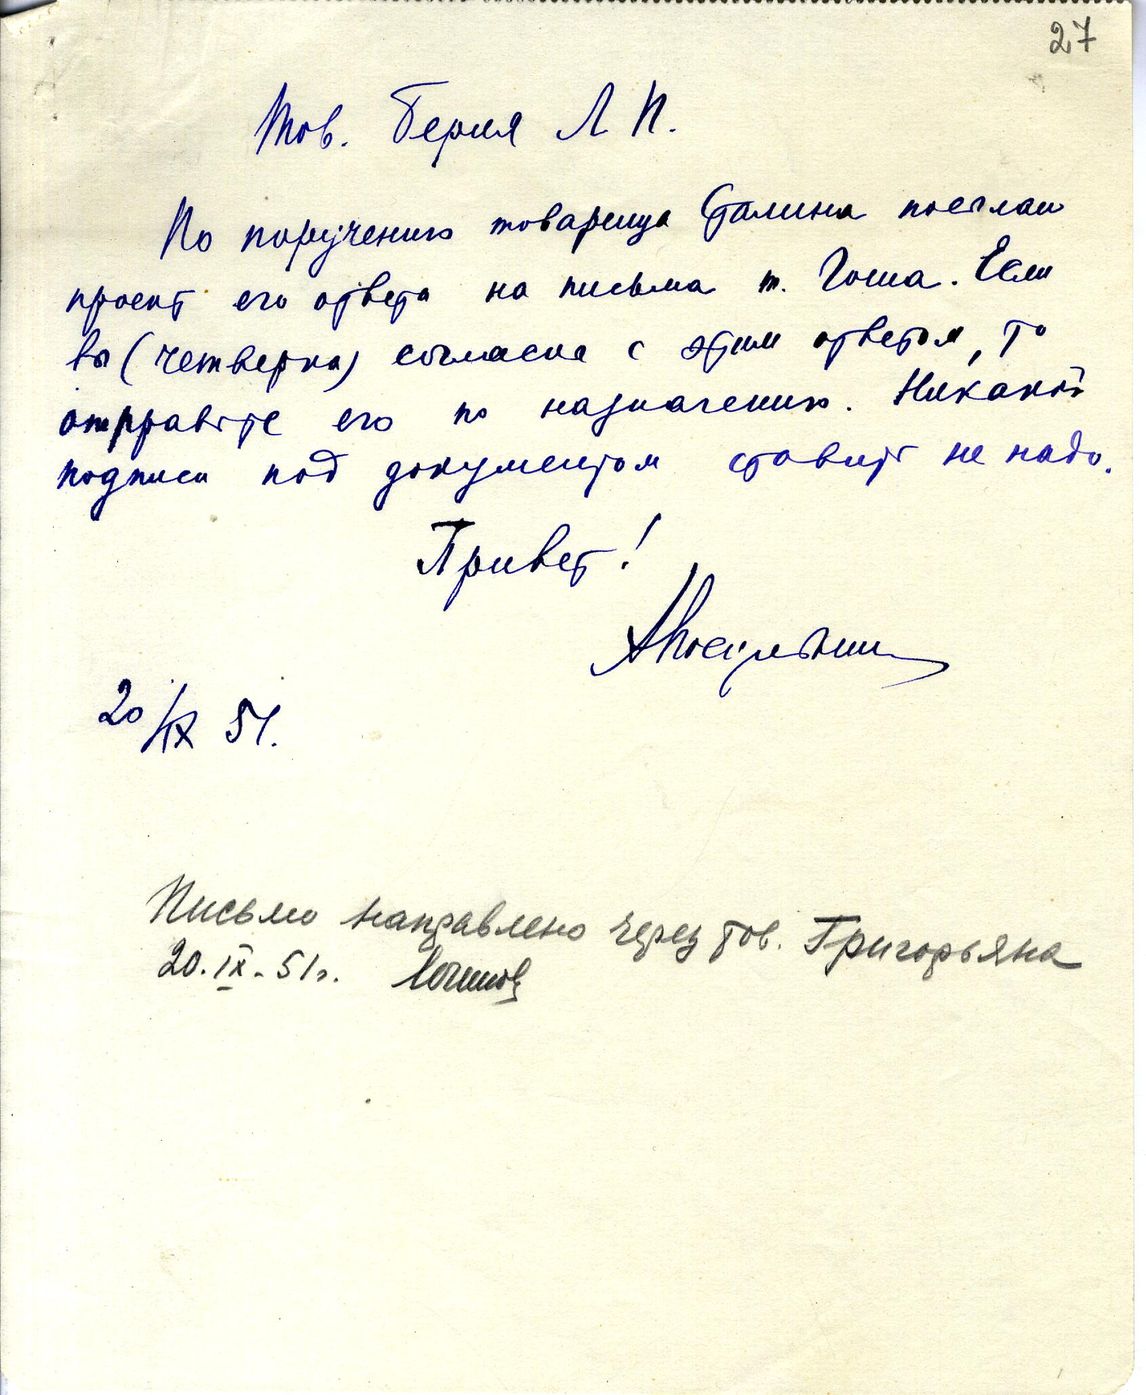 27
Тов. Берия Л П.
По поручению товарища Сталина посылаю
проект его ответа на письма т. Гоша. Если
вы (четверка) согласны с этим ответом, то
отправьте его по назначению. Никакой
подписи под документом ставить не надо.
Привет!
АПоскребышев
20/IX 51.
Письмо направлено через тов. Григорьяна
20.IX-51г.